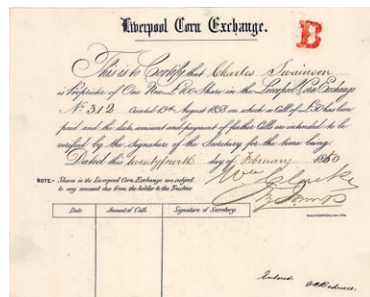 Liverpool Corn Exchange.
B
This is to Certify that Charles Swainson
is Proprietor of One New £100 Share in the Liverpool Corn Exchange
No. 312 Created 19th August 1853 on which a Call of £50 has been
paid and the date, amount and payment of further Calls are intended to be
verified by the Signature of the Secretary for the time being.
Dated this twentyfourth day of February 1860
NOTE:- Shares in the Liverpool Corn Exchange are subject
to any amount due from the holder to the Trustees
Date Amount of Call. Signature of Secretary.
Entered